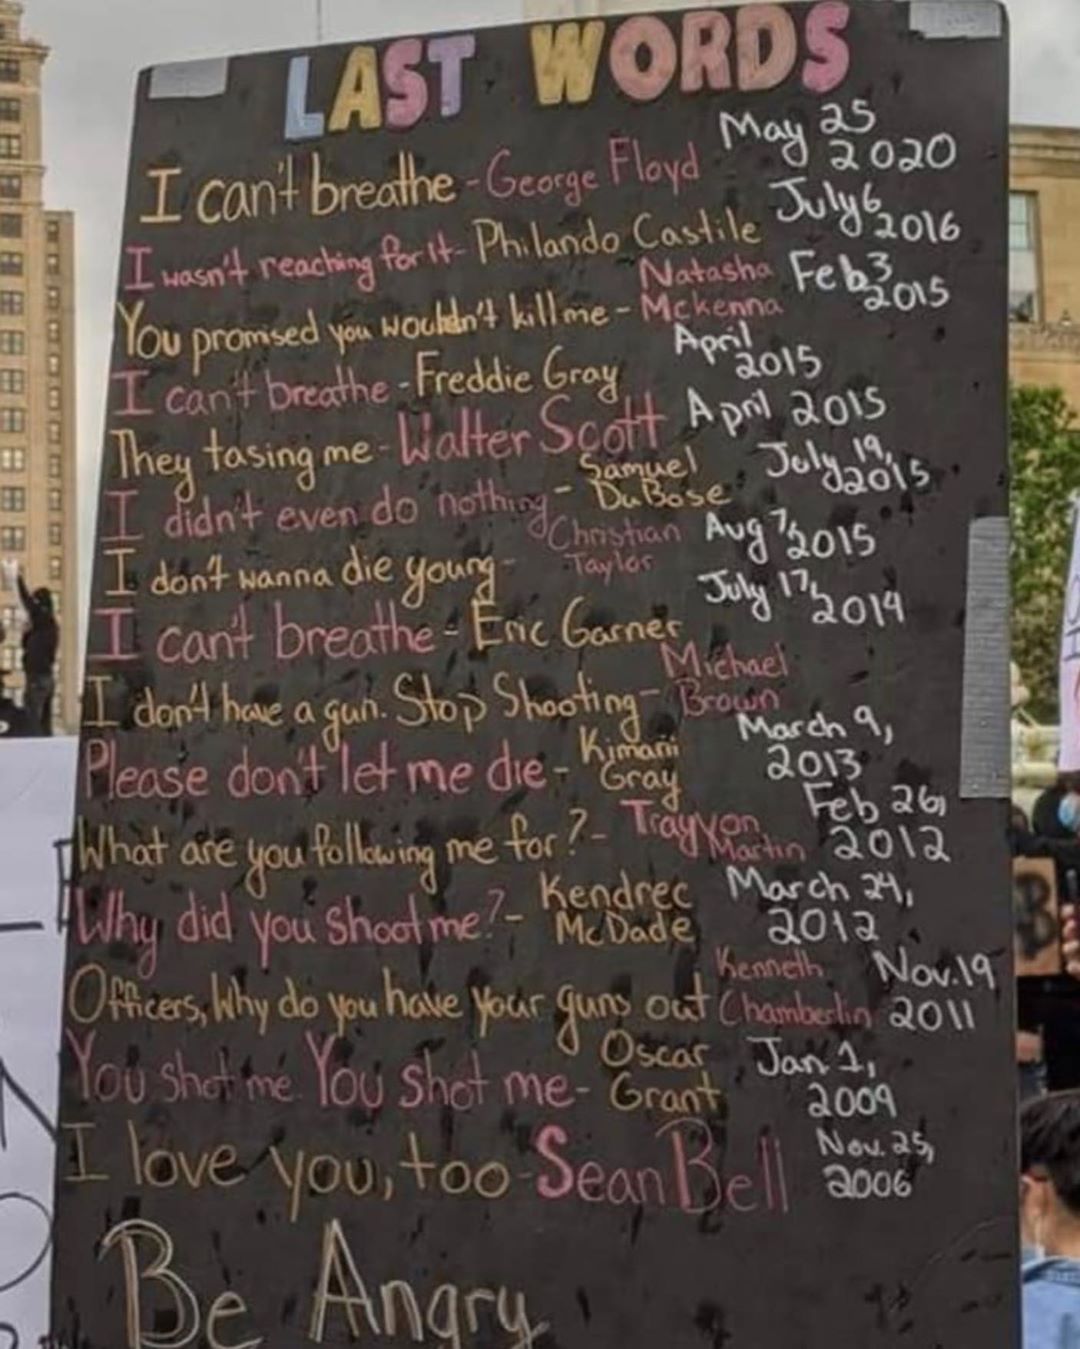 LAST WORDS
I can't breathe - George Floyd May 25 2020
I wasn't reaching for it - Philando Castile July 6 2016
You promised you wouldn't kill me - Natasha Mckenna Feb 3 2015
I can't breathe - Freddie Gray April 2015
They tasing me - Walter Scott April 2015
I didn't even do nothing - Samuel DuBose July 19, 2015
I don't wanna die young - Christian Taylor Aug 7, 2015
I can't breathe - Eric Garner July 17, 2014
I don't have a gun. Stop Shooting - Michael Brown
Please don't let me die - Kimani Gray March 9, 2013
What are you following me for? - Trayvon Martin Feb 26, 2012
Why did you shoot me? - Kendrec McDade March 24, 2012
Officers, Why do you have your guns out Kenneth Chamberlin Nov. 19 2011
You shot me. You shot me - Oscar Grant Jan 1, 2009
I love you, too - Sean Bell Nov. 25, 2006
Be Angry